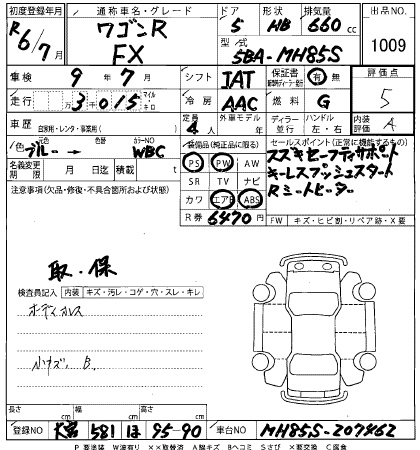 初度登録年月 R6/7月
通称車名・グレード ワゴンR FX
ドア 5 形状 HB 排気量 660cc
型式 5BA-MH85S
出品NO. 1009
車検 9年7月 シフト JAT 保証書 有 無
評価点 5
走行 3015 マイル キロ 冷房 AAC 燃料 G
内装 A
車歴 自家用・レンタ・事業用( ) 定員 4人 外車モデル 年 ディーラー 並行 ハンドル 左・右
色 ブルー → 色替 カラーNO WBC
名義変更期限 月 日迄 積載 t
装備品(純正品に限る)
PS PW AW
SR TV ナビ
カワ エアB ABS
R券 6470円
セールスポイント(正常に機能するもの)
スズキセーフティサポート
キーレスプッシュスタート
Rシートヒーター
FW キズ・ヒビ割・リペア跡・X要
注意事項(欠品・修復・不具合箇所および状態)
取・保
検査員記入 内装 キズ・汚レ・コゲ・穴・スレ・キレ
オーディオレス
小キズ B
長さ cm 幅 cm 高さ cm
登録NO 581 は 95-90 車台NO MH85S-207462
P 要塗装 W波有り ××取替済 A線キズ Bヘコミ Sさび ×要交換 C腐食